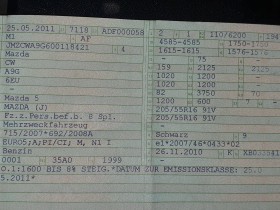 25.05.2011 7118 ADF000058 2 1 110/6200 194
M1 AF 4585-4585 1750-1750
JMZCWA9G600118421 4 1615-1615 1576-1770
Mazda - 75 -
CW 159 2125 2125
A9G 1020 1200 -
6EU 1020 1200 -
82 3750 72
Mazda 5 1200 600 7 -
MAZDA (J) 205/55R16 91V
Fz.z.Pers.bef.b. 8 Spl. 205/55R16 91V
Mehrzweckfahrzeug -
715/2007*692/2008A Schwarz 9
EURO5;A;PI/CI; M, N1 I e1*2007/46*0433*02
Benzin 26.11.2010 K
0001 35A0 1999
O.1:1600 BIS 8% STEIG.*DATUM ZUR EMISSIONSKLASSE: 25.0
5.2011*